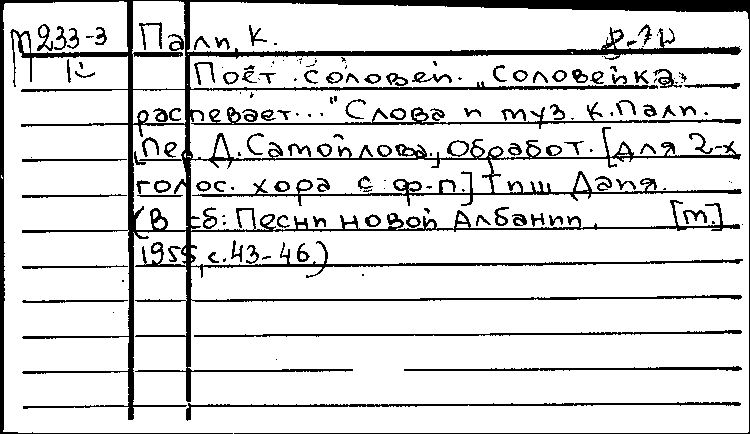 М233-3 Пали, К.
Поёт соловей. „Соловейка
распевает..." Слова и муз. К. Пали.
Пер. Д. Самойлова, Обработ. [для 2-х
голос. хора с ф-п.] Тиш Даия.
(В сб: Песни новой Албании. [М.]
1955, с. 43-46.)